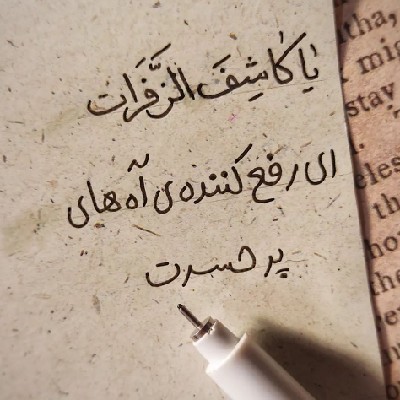 یا کاشِفَ الزَّفَرات
ای رفع کننده‌ی آه های
پر حسرت
tha,
mig
stay
t.
eles
th
ho
the